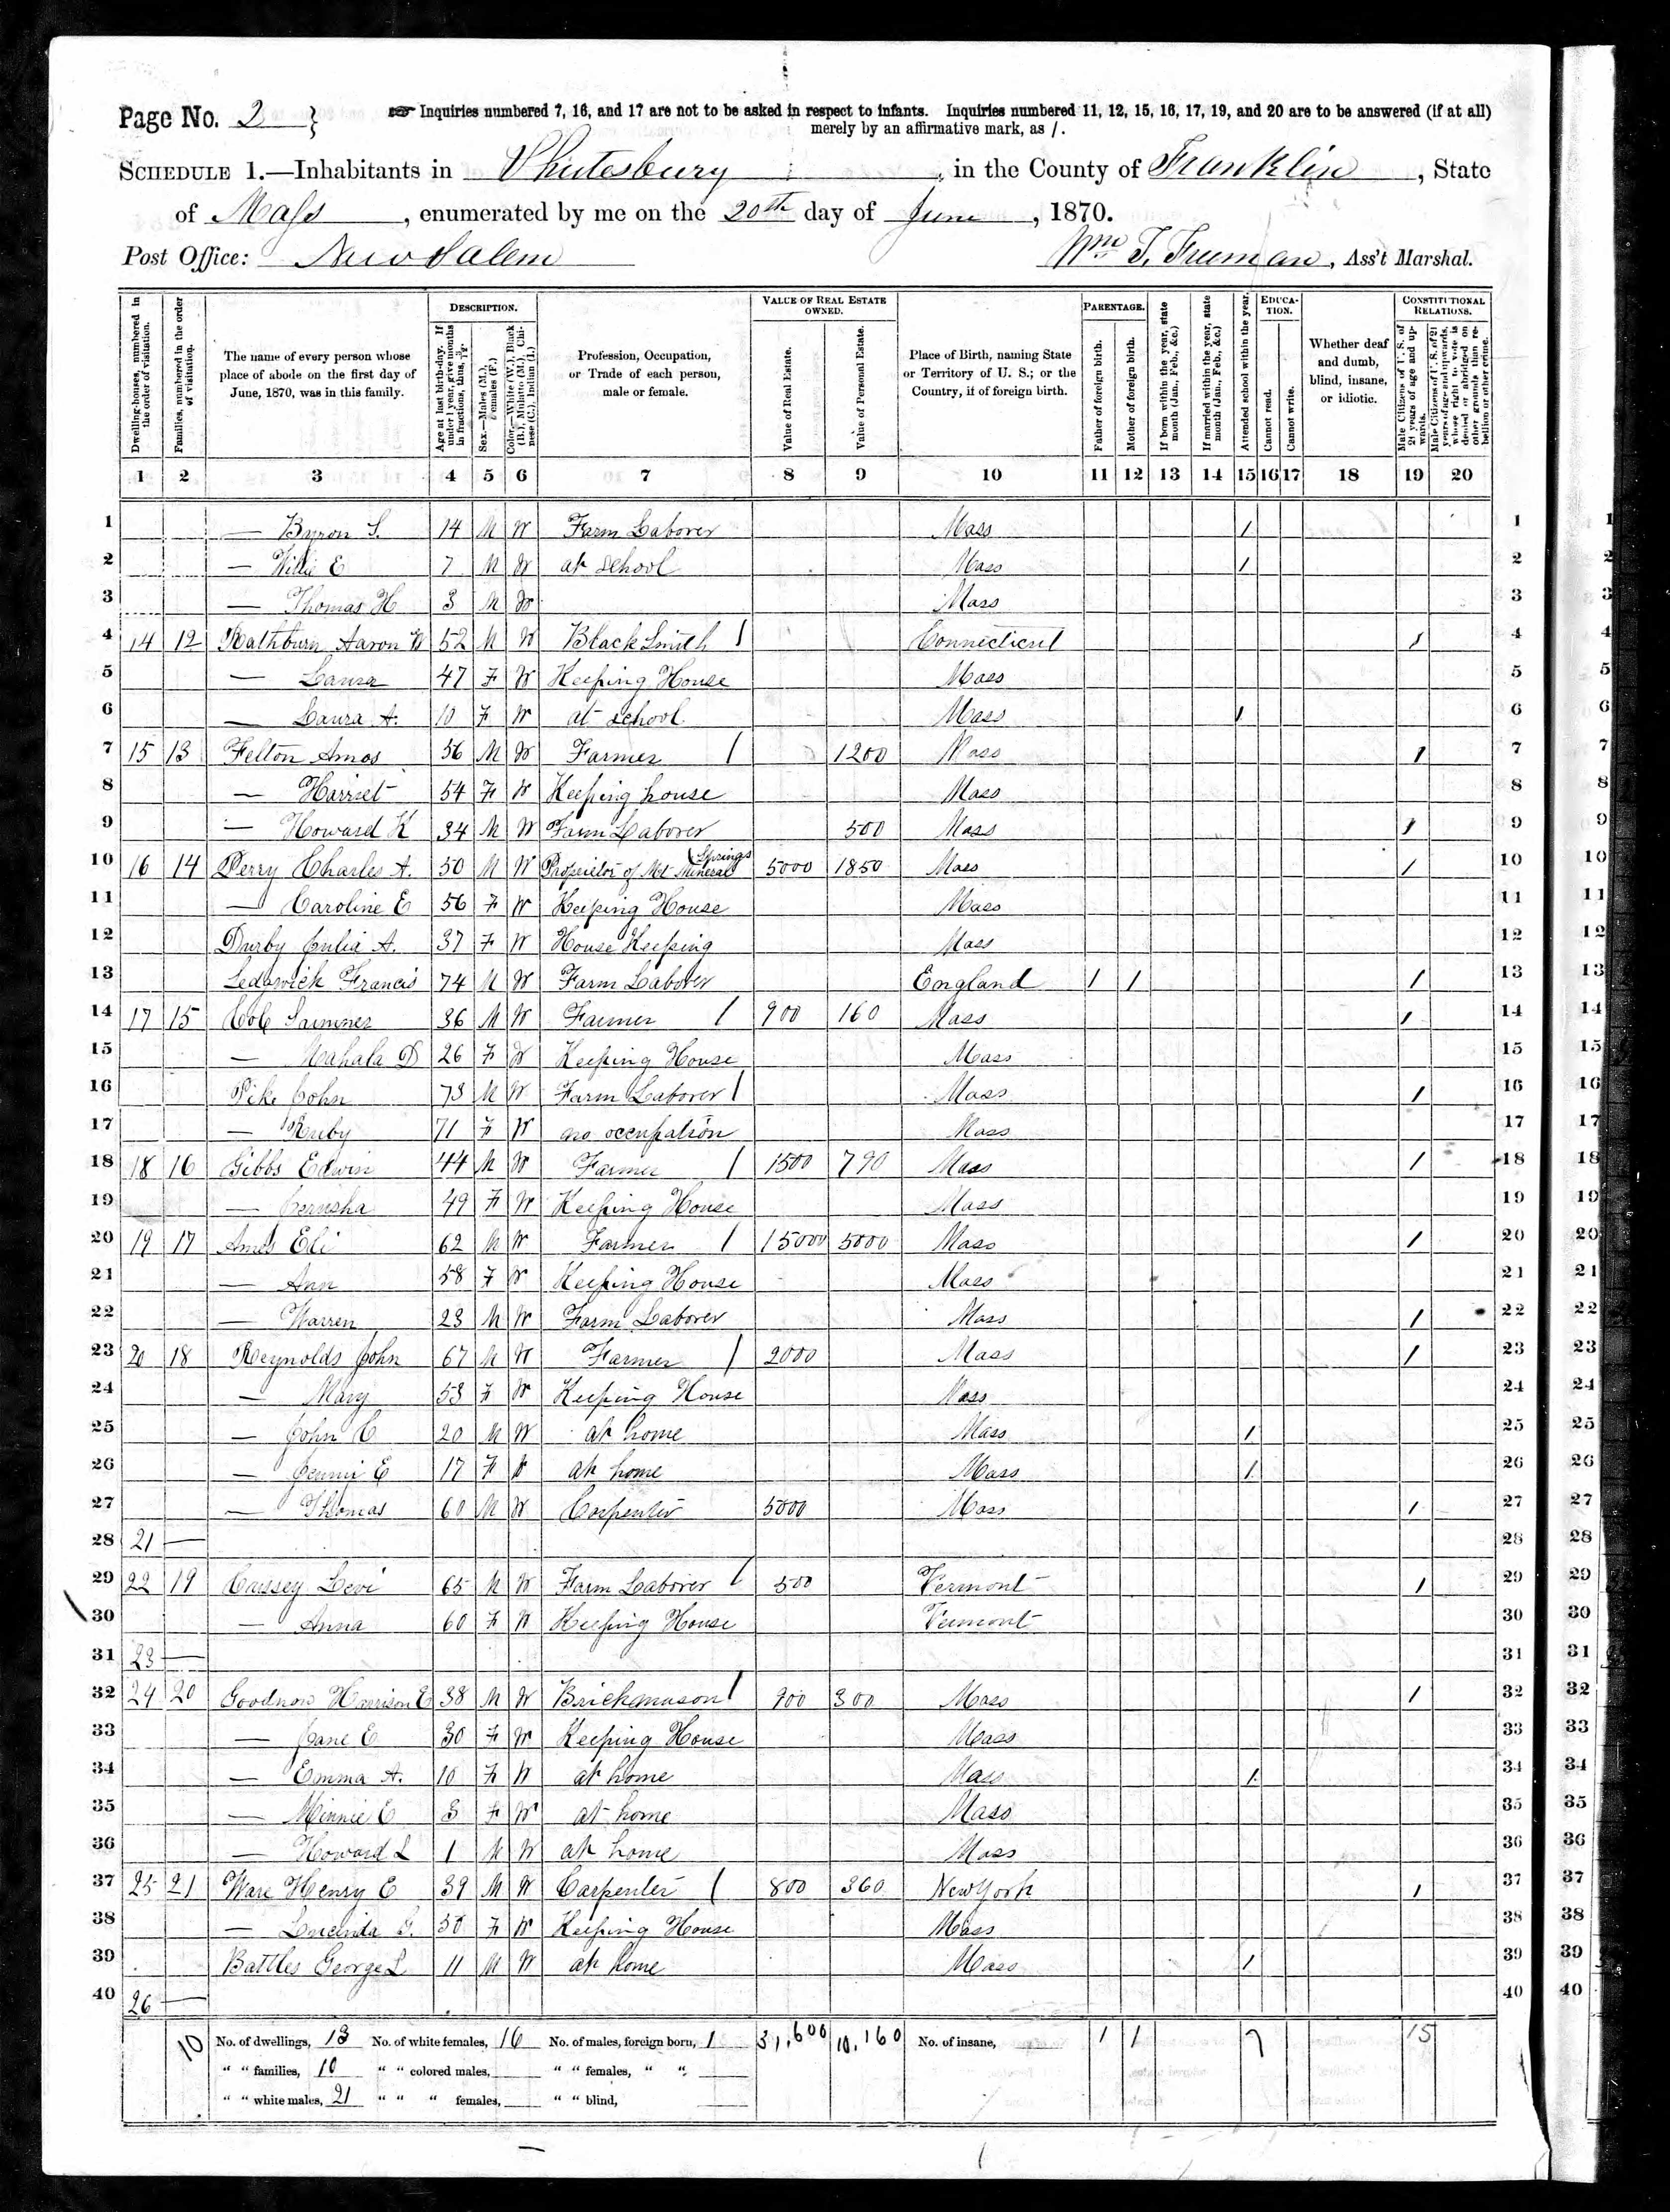 Page No. 2
☞ Inquiries numbered 7, 16, and 17 are not to be asked in respect to infants. Inquiries numbered 11, 12, 15, 16, 17, 19, and 20 are to be answered (if at all)
merely by an affirmative mark, as /.
SCHEDULE 1.—Inhabitants in Shutesbury, in the County of Franklin, State
of Mass, enumerated by me on the 20th day of June, 1870.
Post Office: New Salem Wm T. Freeman, Ass't Marshal.
Dwelling-houses, numbered in the order of visitation.
Families, numbered in the order of visitation.
The name of every person whose place of abode on the first day of June, 1870, was in this family.
DESCRIPTION.
Age at last birth-day. If under 1 year, give months in fractions, thus, 3/12.
Sex.—Males (M.), Females (F.)
Color.—White (W.), Black (B.), Mulatto (M.), Chinese (C.), Indian (I.)
Profession, Occupation, or Trade of each person, male or female.
VALUE OF REAL ESTATE OWNED.
Value of Real Estate.
Value of Personal Estate.
Place of Birth, naming State or Territory of U. S.; or the Country, if of foreign birth.
PARENTAGE.
Father of foreign birth.
Mother of foreign birth.
If born within the year, state month (Jan., Feb., &c.)
If married within the year, state month (Jan., Feb., &c.)
Attended school within the year.
EDUCATION.
Cannot read.
Cannot write.
Whether deaf and dumb, blind, insane, or idiotic.
CONSTITUTIONAL RELATIONS.
Male Citizens of U. S. of 21 years of age and upwards.
Male Citizens of U. S. of 21 years of age and upwards, whose right to vote is denied or abridged on other grounds than rebellion or other crime.
1 2 3 4 5 6 7 8 9 10 11 12 13 14 15 16 17 18 19 20
1 — Byron S. 14 M W Farm Laborer Mass / 1
2 — Willie E 7 M W at School Mass / 2
3 — Thomas H 3 M W Mass 3
4 14 12 Rathburn Aaron W 52 M W Black Smith / Connecticut / 4
5 — Laura 47 F W Keeping House Mass 5
6 — Laura A. 10 F W at School Mass / 6
7 15 13 Felton Amos 56 M W Farmer / 1200 Mass / 7
8 — Harriet 54 F W Keeping house Mass 8
9 — Howard K 34 M W Farm Laborer 500 Mass / 9
10 16 14 Perry Charles A. 50 M W Proprietor of Mt Mineral Springs 5000 1850 Mass / 10
11 — Caroline E 56 F W Keeping House Mass 11
12 Durby Julia A. 37 F W House Keeping Mass 12
13 Francis 74 M W Farm Laborer England / / / 13
14 17 15 Cole Sumner 36 M W Farmer / 900 160 Mass / 14
15 — Mahala D 26 F W Keeping House Mass 15
16 Pike John 73 M W Farm Laborer / Mass / 16
17 — Ruby 71 F W no occupation Mass 17
18 18 16 Gibbs Edwin 44 M W Farmer / 1500 790 Mass / 18
19 — Jerusha 49 F W Keeping House Mass 19
20 19 17 Ames Eli 62 M W Farmer / 15000 5000 Mass / 20
21 — Ann 58 F W Keeping House Mass 21
22 — Warren 23 M W Farm Laborer Mass / 22
23 20 18 Reynolds John 67 M W Farmer / 2000 Mass / 23
24 — Mary 53 F W Keeping House Mass 24
25 — John C 20 M W at home Mass / 25
26 — Jennie E 17 F W at home Mass / 26
27 — Thomas 60 M W Carpenter 5000 Mass / 27
28 21 — 28
29 22 19 Levi 65 M W Farm Laborer / 500 Vermont / 29
30 — Anna 60 F W Keeping House Vermont 30
31 23 — 31
32 24 20 Goodnow Harrison E 38 M W Brickmason / 900 300 Mass / 32
33 — Jane E 30 F W Keeping House Mass 33
34 — Emma A. 10 F W at home Mass / 34
35 — Minnie E 3 F W at home Mass 35
36 — Howard L 1 M W at home Mass 36
37 25 21 Ware Henry E 39 M W Carpenter / 800 360 New York / 37
38 — G. 50 F W Keeping House Mass 38
39 Battles George L 11 M W at home Mass / 39
40 26 — 40
10 No. of dwellings, 13 No. of white females, 16 No. of males, foreign born, 1 31,600 10,160 No. of insane, 1 1 7 15
" " families, 10 " " colored males, " " females, " "
" " white males, 21 " " " females, " " blind,